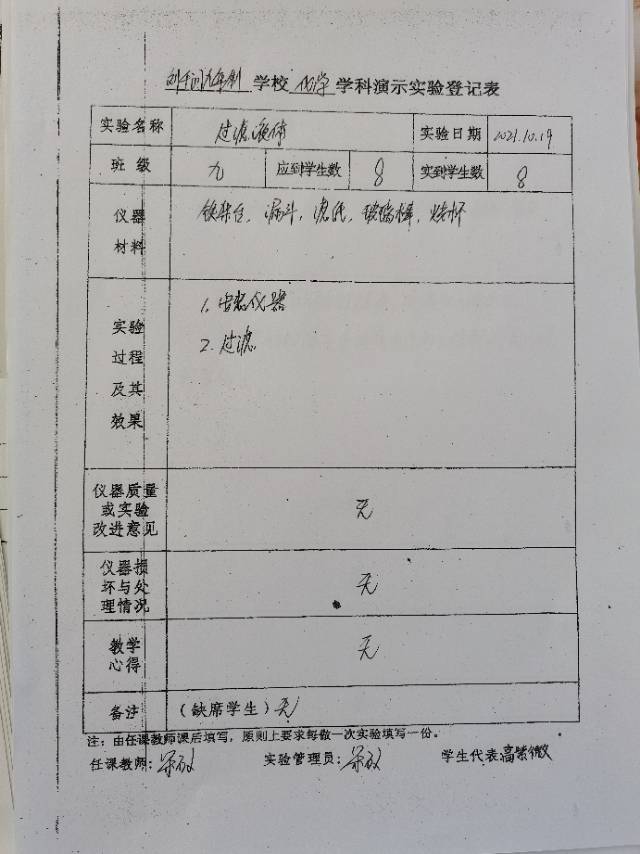 九年制 学校 化学 学科演示实验登记表
实验名称 过滤液体 实验日期 2021.10.19
班级 九 应到学生数 8 实到学生数 8
仪器
材料
铁架台，漏斗，滤纸，玻璃棒，烧杯
实验
过程
及其
效果
1. 仪器
2. 过滤
仪器质量
或实验
改进意见
无
仪器损
坏与处
理情况
无
教学
心得
无
备注 （缺席学生）无
注：由任课教师课后填写，原则上要求每做一次实验填写一份。
任课教师： 实验管理员： 学生代表 高紫微